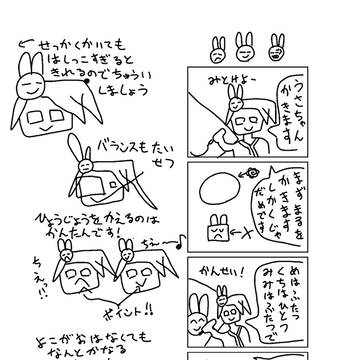 せっかくかいても
はしっこすぎると
きれるのでちゅうい
しましょう
バランスもたい
せつ
ひょうじょうをかえるのは
かんたんです!
ちぇー
ちぇっ!!
ポイント!!
よこがおはなくても
なんとかなる
みとけよー
うさちゃん
かきます
まずまるを
かきます
しかくじゃ
だめです
かんせい!
めはふたつ
くちはひとつ
みみはふたつで